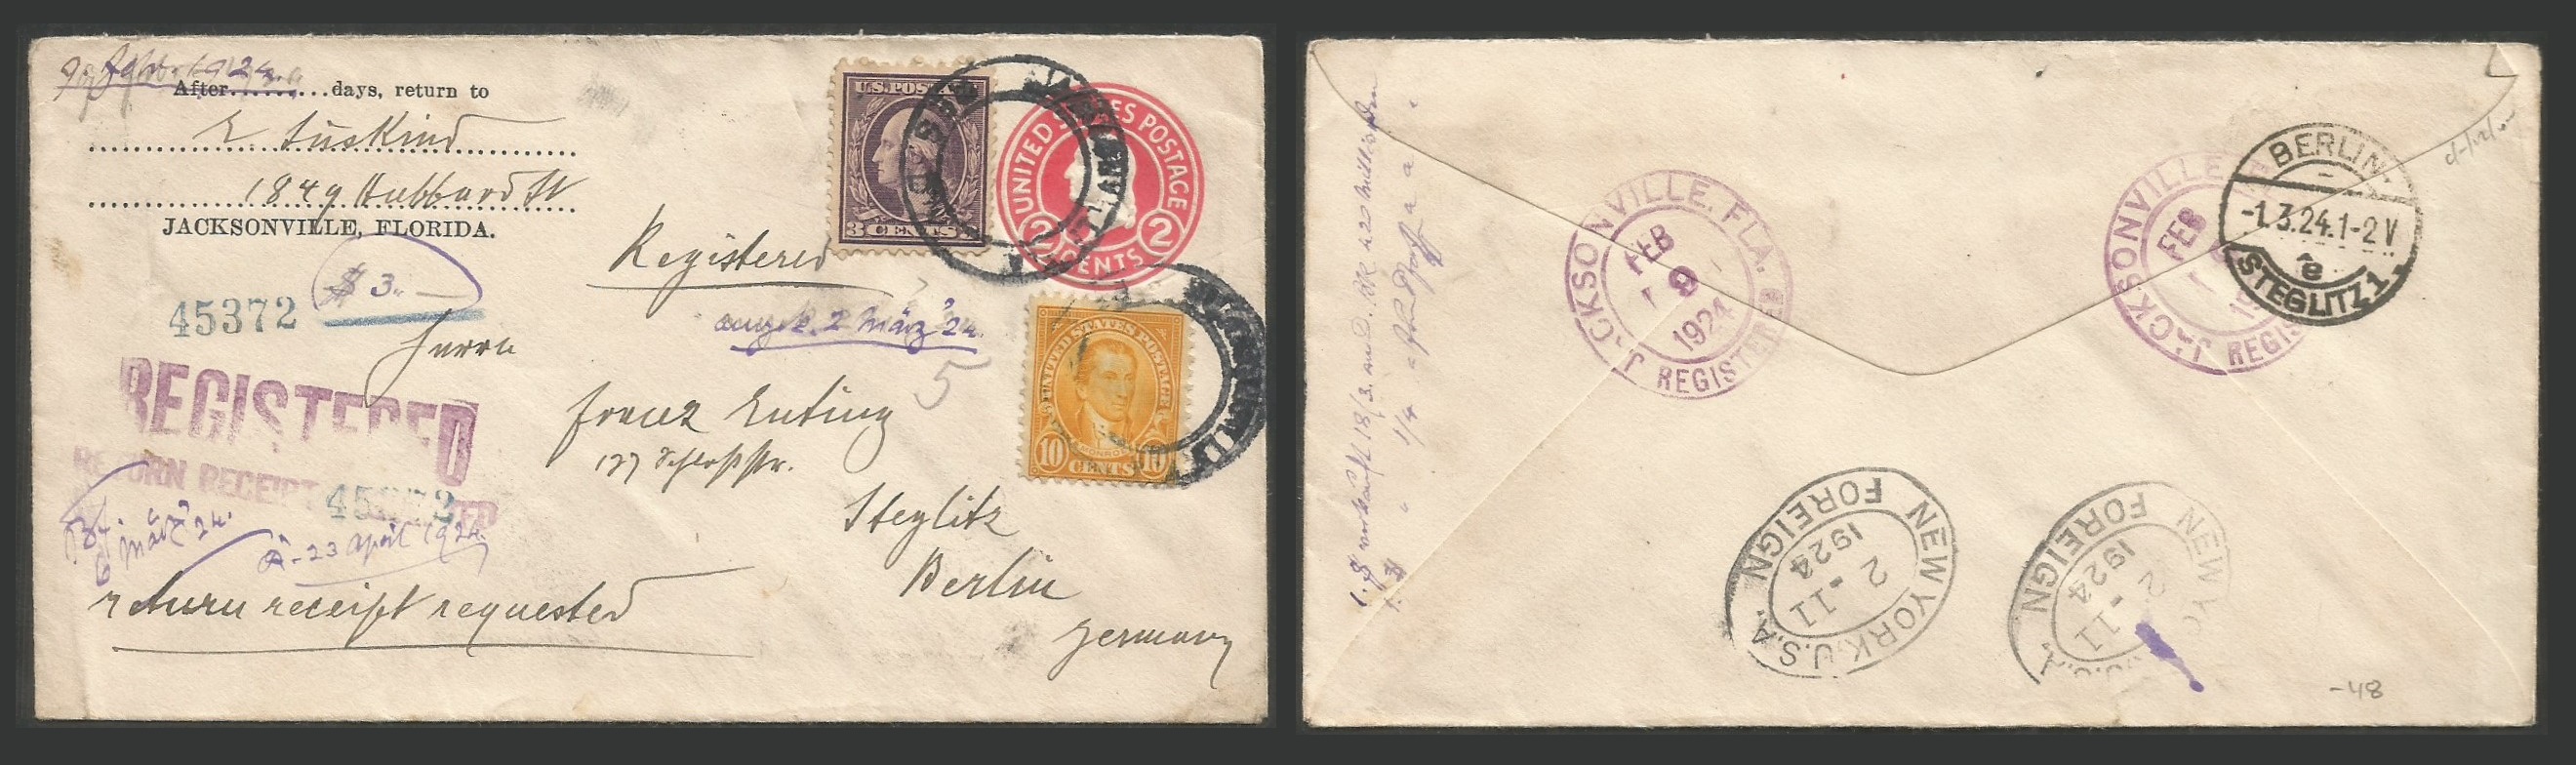 1924.
After.........days, return to
E. Süskind
1849 Hubbard St
JACKSONVILLE, FLORIDA.
$3.-
45372
REGISTERED
RETURN RECEIPT
45372
März 24.
23 April 1924.
return receipt requested
U.S. POSTAGE
3 CENTS
UNITED STATES POSTAGE
2 CENTS 2
Registered
2 März 24.
5
UNITED STATES POSTAGE
MONROE
10 CENTS 10
Herrn
Franz Enting
Schloßstr.
Steglitz
Berlin
Germany
JACKSONVILLE, FLA.
FEB
9
1924
REGISTERED
JACKSONVILLE
FEB
REGIS
BERLIN-
-1.3.24.1-2V
e
STEGLITZ 1
NEW YORK, U.S.A.
FOREIGN
2-11
1924
NEW YO
U.S.A.
FOREIGN
2-11
1924
-48